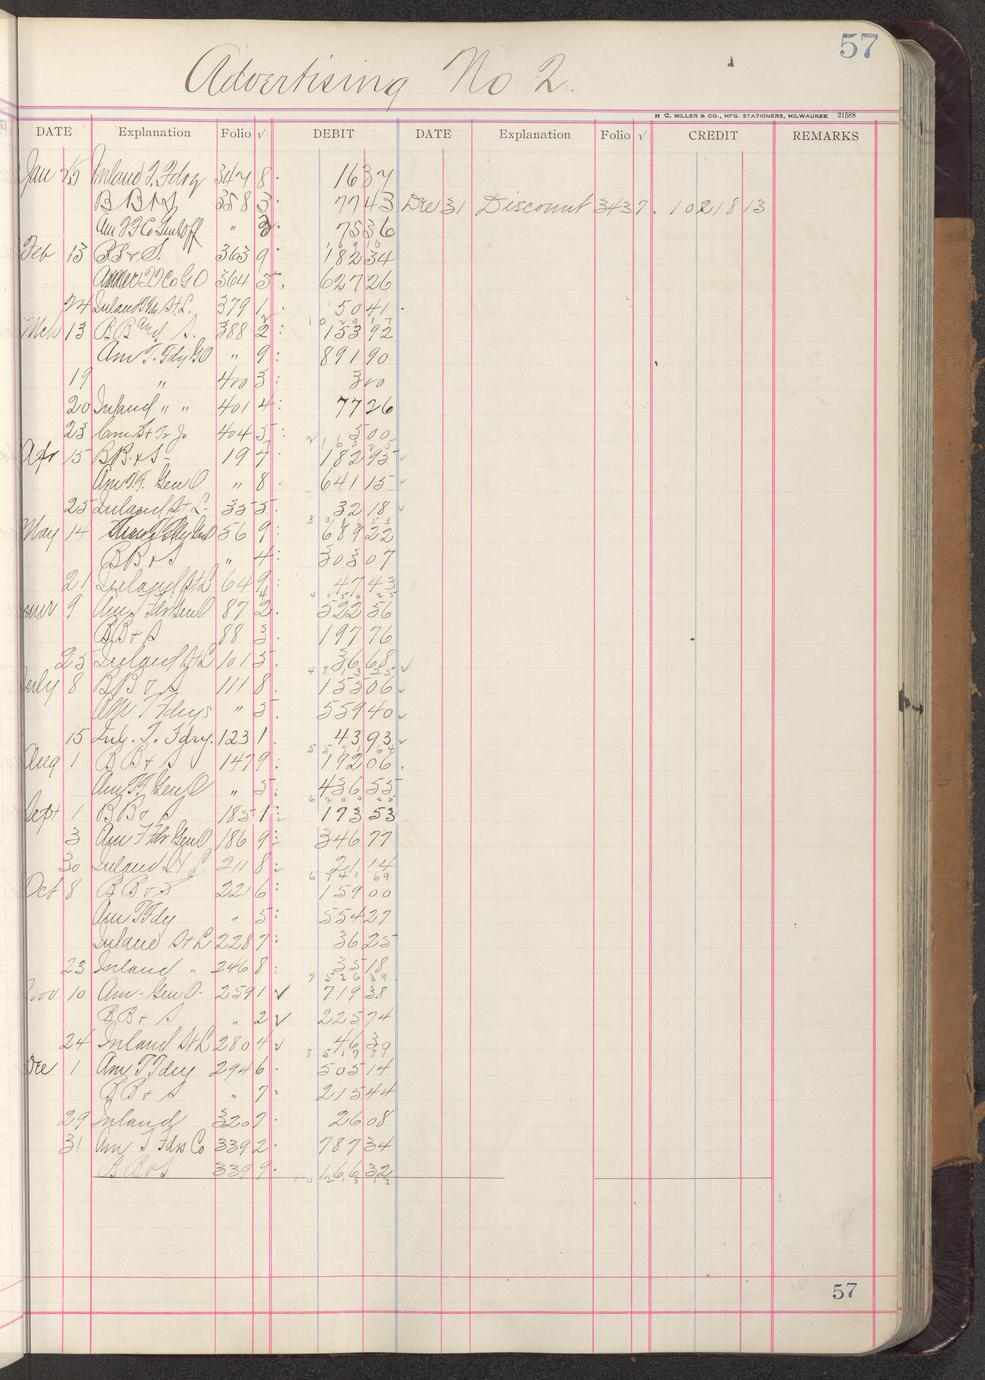 57
Advertising No 2.
H. C. MILLER & CO., MFG. STATIONERS, MILWAUKEE 21588
DATE Explanation Folio √ DEBIT DATE Explanation Folio √ CREDIT REMARKS
Jan Inland T. Fdry 347 8 16 37
B B & S 358 3 77 43 Dec 31 Discount 343 7 10218 13
Am T F Co " 75 36
Feb 13 BB & S. 363 9 182 34
364 5 627 26
24 Inland St L. 379 1 50 41
Mch 13 B B and S. 388 2 153 92
Am T. Fdy GO " 9 891 90
19 " 400 3 3 00
20 Inland " " 401 4 77 26
23 404 5 5 00
Apr 15 B.B. & S 19 7 182 95
Am T.F. Gen O " 8 641 15
25 Inland St L 33 5 32 18
May 14 56 9 689 22
BB & S " 4 303 07
21 Inland St L 64 9 47 43
9 Am T Fdr Gen O 87 2 522 56
BB & S 88 3 197 76
25 Inland St L 101 5 36 68
July 8 B B & S 111 8 155 06
Am T Fdrys " 5 559 40
15 Inl. T. Fdry. 123 1 43 93
Aug 1 B B & S 147 9 192 06
Am T F Gen O " 5 436 55
Sept 1 B B & S 185 1 173 53
3 Am T Fdr Gen O 186 9 346 77
30 Inland St L 211 8 21 14
Oct 8 B B & S 221 6 159 00
Am T Fdy " 5 554 27
Inland St L 228 7 36 25
23 Inland " 246 8 35 18
Nov 10 Am- Gen O- 259 1 √ 719 38
BB & S " 2 √ 225 74
24 Inland St L 280 4 46 39
Dec 1 Am T Fdry 294 6 505 14
B B & S " 7 215 44
29 Inland 320 7 26 08
31 Am T Fdrs Co 339 2 787 34
B B & S 339 9 166 32
57